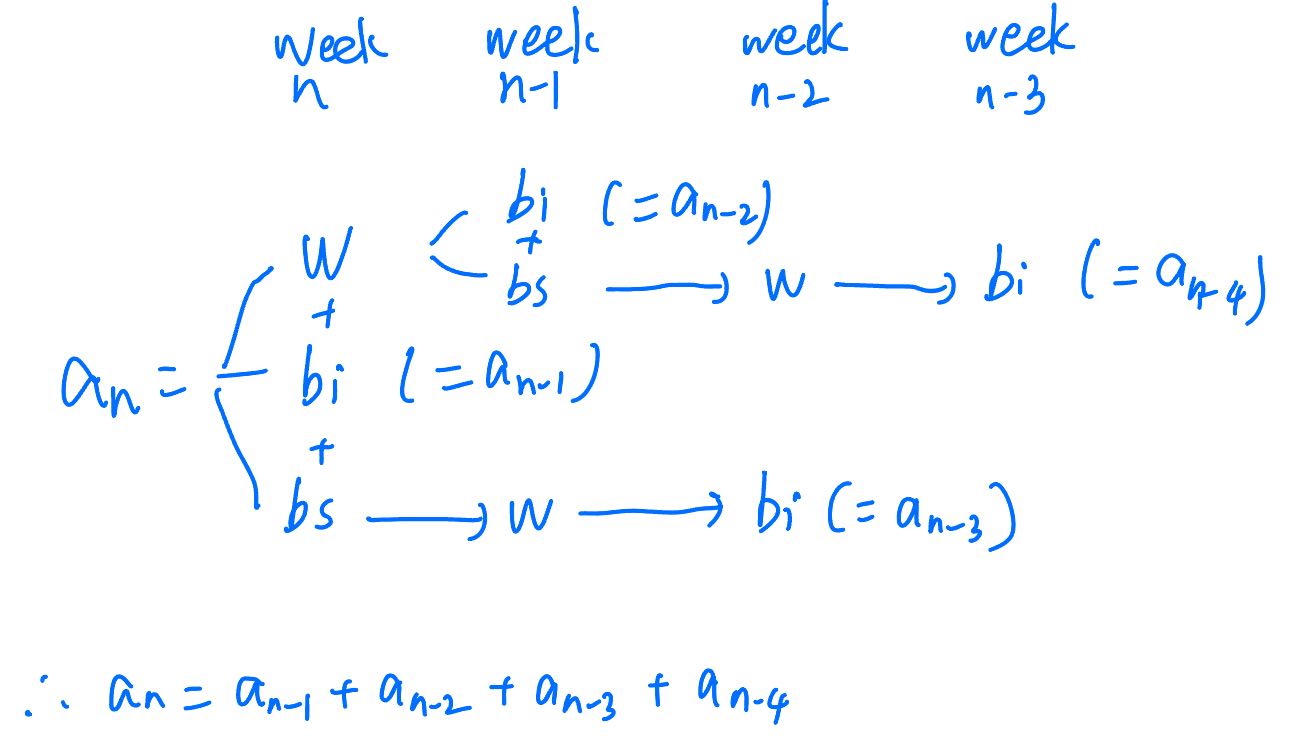 week week week week
n n-1 n-2 n-3
bi (=aₙ₋₂)
+
W bs → w → bi (=aₙ₋₄)
+
aₙ = bi (=aₙ₋₁)
+
bs → w → bi (=aₙ₋₃)
∴ aₙ = aₙ₋₁ + aₙ₋₂ + aₙ₋₃ + aₙ₋₄